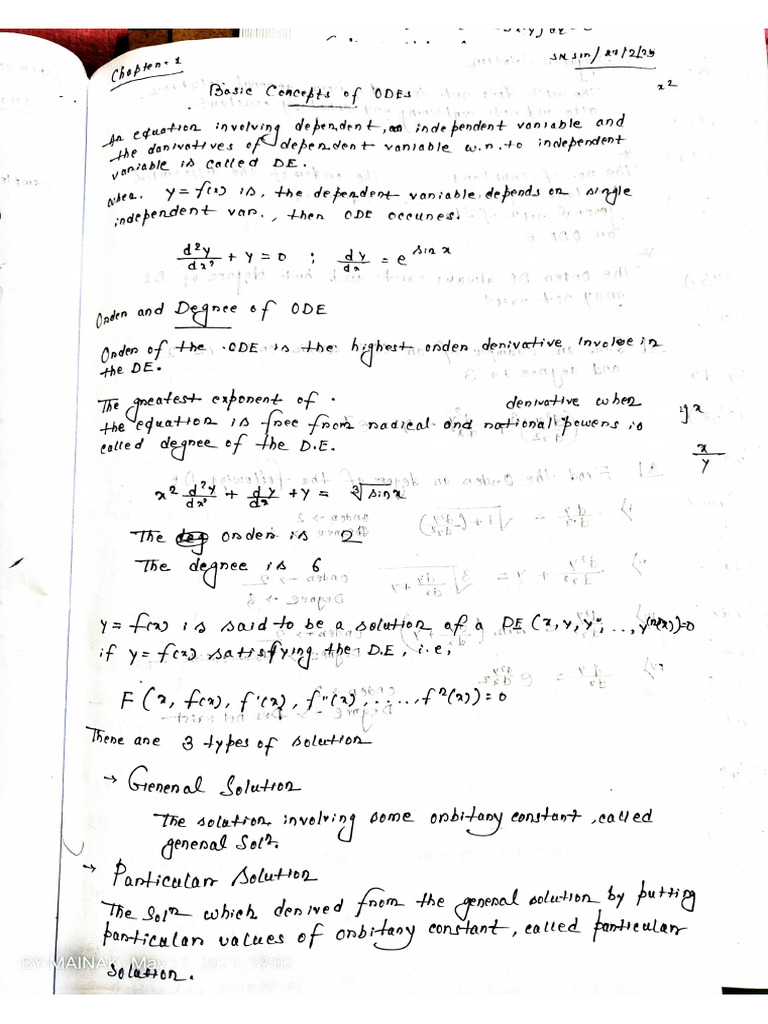 Chapter-1
SK sir/27/2/25
Basic Concepts of ODEs
x²
An equation involving dependent, an independent variable and
the derivatives of dependent variable w.r.to independent
variable is called DE.
when. y = f(x) is, the dependent variable depends on single
independent var., then ODE occures.
d²y/dx² + y = 0 ; dy/dx = e^sin x
Order and Degree of ODE
Order of the ODE is the highest order derivative involve in
the DE.
The greatest exponent of . derivative when
the equation is free from radical and rational powers is
called degree of the D.E.
x/y
x² d²y/dx² + dy/dx + y = ∛sin x
The order is 2
The degree is 6
y = f(x) is said to be a solution of a DE (x, y, y'', ..., y^(n)(x)) = 0
if y = f(x) satisfying the D.E, i.e,
F (x, f(x), f'(x), f''(x), ......, fⁿ(x)) = 0
There are 3 types of solution
→ General Solution
The solution involving some orbitary constant, called
general Solⁿ.
→ Particular Solution
The Solⁿ which derived from the general solution by putting
particular values of orbitary constant, called particular
solution.
BY MAINAK